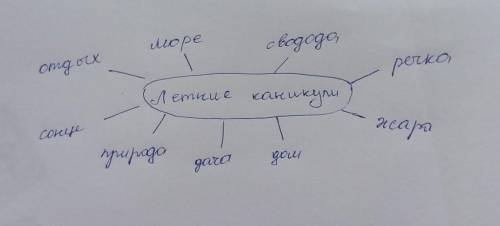 отдых
море
свобода
речка
Летние каникули
сонце
природа
дача
дом
жара